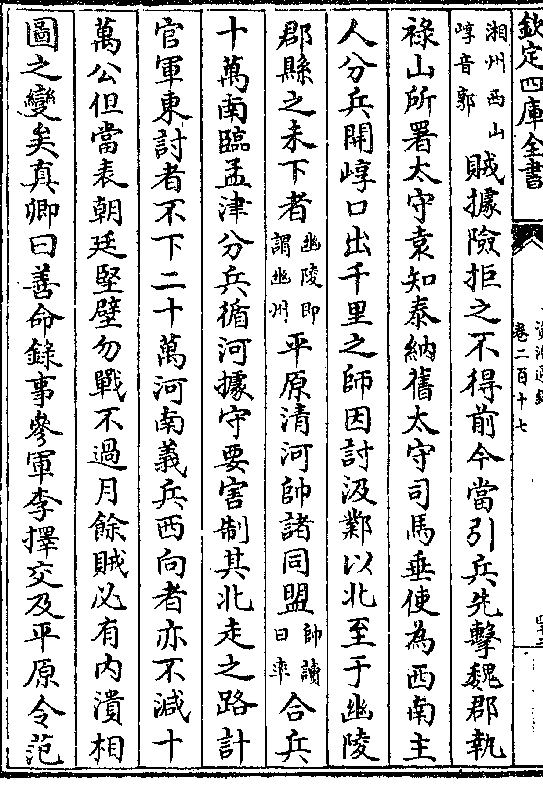 欽定四庫全書
卷二百十七
湘州西山崞音郭賊據險拒之不得前今當引兵先擊魏郡執
祿山所署太守袁知泰納舊太守司馬垂使為西南主
人分兵開崞口出千里之師因討汲鄴以北至于幽陵
郡縣之未下者幽陵即謂幽州平原清河帥諸同盟帥讀曰率合兵
十萬南臨孟津分兵循河據守要害制其北走之路計
官軍東討者不下二十萬河南義兵西向者亦不減十
萬公但當表朝廷堅壁勿戰不過月餘賊必有內潰相
圖之變矣真卿曰善命錄事參軍李擇交及平原令范